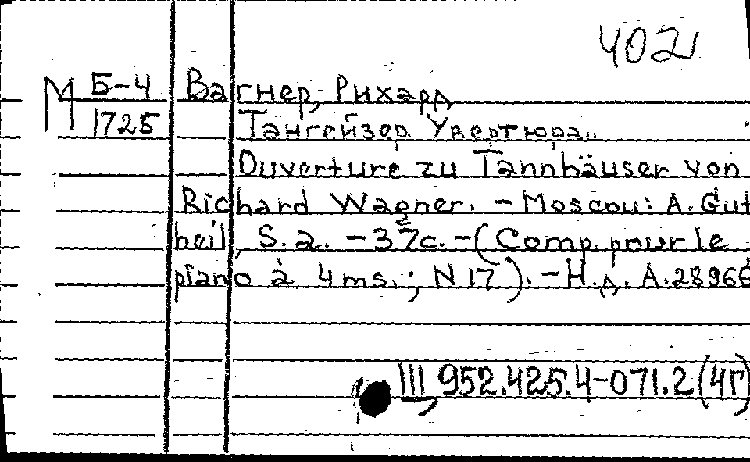 402
М Б-4 Вагнер, Рихард
1725 Тангейзер. Увертюра.
Ouverture zu Tannhäuser von
Richard Wagner. - Moscou: A. Gut
heil, S. a. - 37с. - (Comp. pour le
piano à 4 ms.; N 17). - Н. д. A.28966
III, 952.425.4-071.2(4Г)